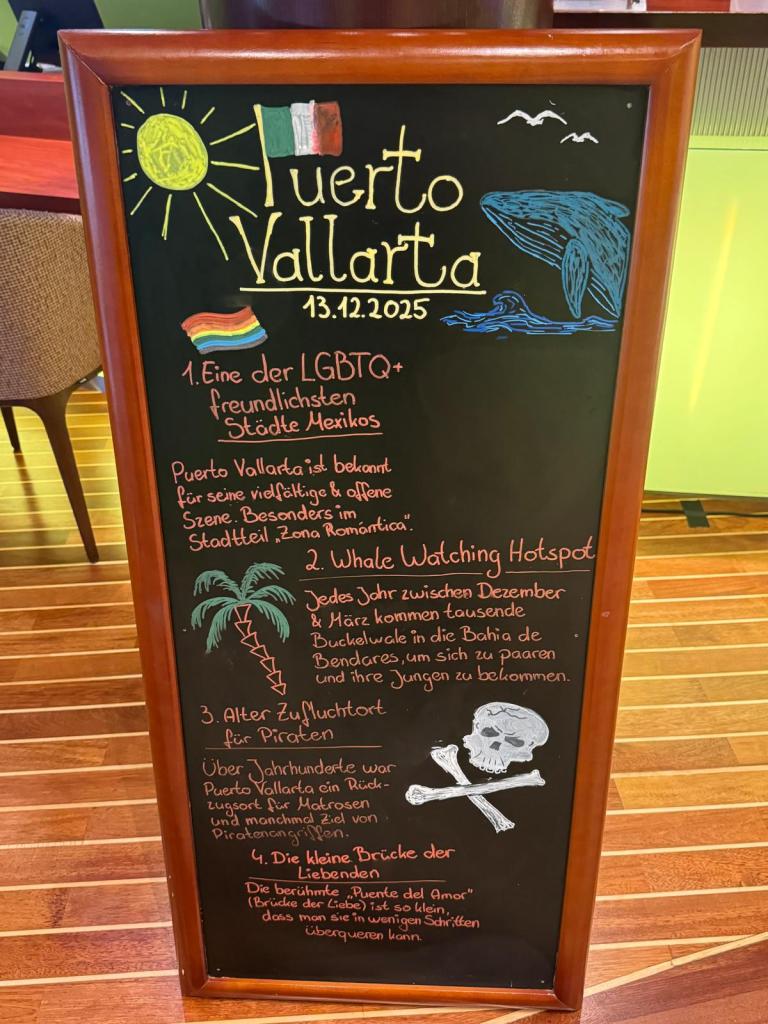 Puerto
Vallarta
13.12.2025
1. Eine der LGBTQ+
freundlichsten
Städte Mexikos
Puerto Vallarta ist bekannt
für seine vielfältige & offene
Szene. Besonders im
Stadtteil „Zona Romántica".
2. Whale Watching Hotspot
Jedes Jahr zwischen Dezember
& März kommen tausende
Buckelwale in die Bahia de
Bendares, um sich zu paaren
und ihre Jungen zu bekommen.
3. Alter Zufluchtort
für Piraten
Über Jahrhunderte war
Puerto Vallarta ein Rück-
zugsort für Matrosen
und manchmal Ziel von
Piratenangriffen.
4. Die kleine Brücke der
Liebenden
Die berühmte „Puente del Amor"
(Brücke der Liebe) ist so klein,
dass man sie in wenigen Schritten
überqueren kann.